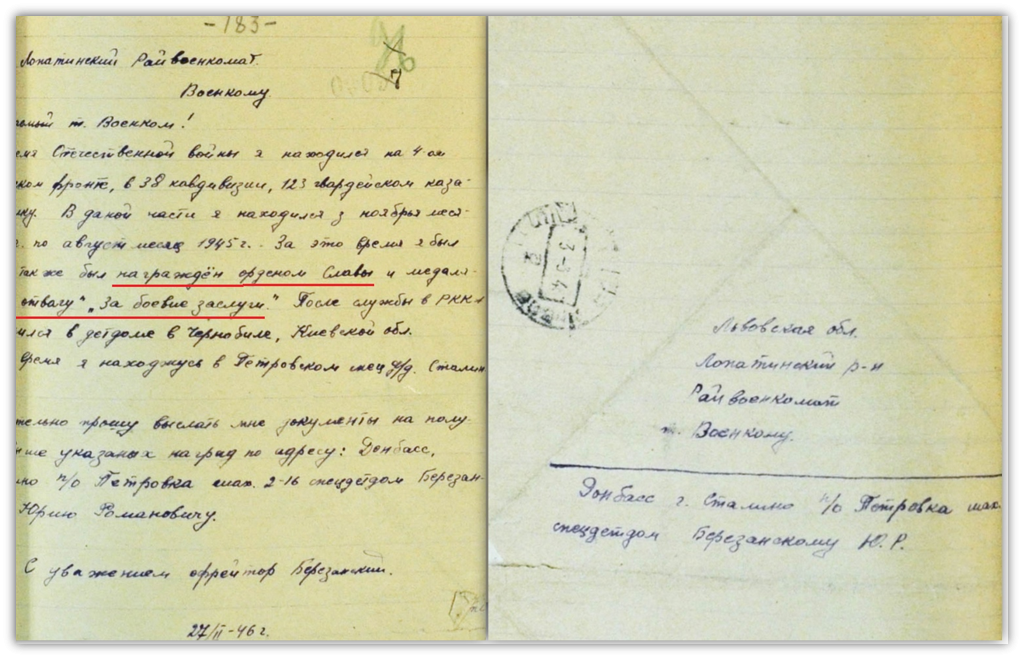 -183-
Лопатинский Райвоенкомат.
Военкому
т. Военком!
Отечественной войны я находился на 4 ом
ком фронте, в 38 кавдивизии, 123 гвардейском каза-
В даной части я находился з ноябрья меся-
по август месяц 1945 г. За это время я был
также был награждён орденом Славы и медаля-
отвагу" „За боевие заслуги". После службы в РККА
ился в детдоме в Чернобиле, Киевской обл.
время я нахожусь в Петровском спец д/д. Сталин
тельно прошу выслать мне документы на полу-
ние указаных наград по адресу: Донбасс,
но п/о Петровка шах. 2-16 спецдетдом Березан-
Юрию Романовичу.
С уважением ефрейтор Березанский.
27/II-46 г.
Львовская обл.
Лопатинский р-н
Райвоенкомат
т. Военкому.
Донбасс г. Сталино п/о Петровка шах.
спецдетдом Березанскому Ю.Р.